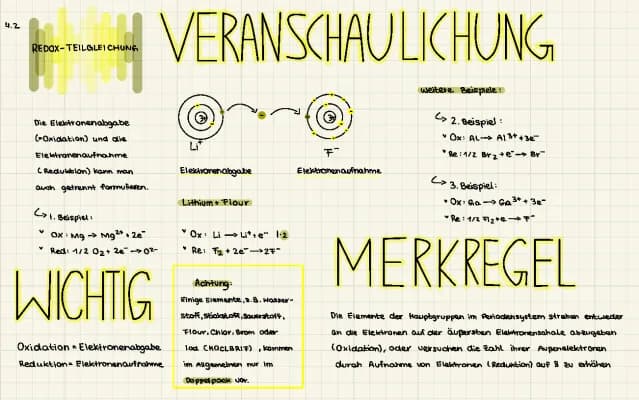 4.2
REDOX-TEILGLEICHUNG
VERANSCHAULICHUNG
Die Elektronenabgabe
(=Oxidation) und die
Elektronenaufnahme
(Reduktion) kann man
auch getrennt formulieren.
↳ 1. Beispiel:
Ox: Mg → Mg²⁺ + 2e⁻
Red: 1/2 O₂ + 2e⁻ → O²⁻
3+
Li⁺
Elektronenabgabe
F⁻
Elektronenaufnahme
Lithium + Flour
Ox: Li → Li⁺ + e⁻ |·2
Re: F₂ + 2e⁻ → 2F⁻
Weitere Beispiele:
↳ 2. Beispiel:
Ox: Al → Al³⁺ + 3e⁻
Re: 1/2 Br₂ + e⁻ → Br⁻
↳ 3. Beispiel:
Ox: Ga → Ga³⁺ + 3e⁻
Re: 1/2 F₂ + e⁻ → F⁻
WICHTIG
Oxidation = Elektronenabgabe
Reduktion = Elektronenaufnahme
Achtung:
Einige Elemente, z.B. Wasser-
stoff, Stickstoff, Sauerstoff,
Flour, Chlor, Brom oder
Iod (HOCLBRIF), kommen
im Allgemeinen nur im
Doppelpack vor.
MERKREGEL
Die Elemente der Hauptgruppen im Periodensystem streben entweder
an die Elektronen auf der äußersten Elektronenschale abzugeben
(Oxidation), oder versuchen die Zahl ihrer Außenelektronen
durch Aufnahme von Elektronen (Reduktion) auf 8 zu erhöhen